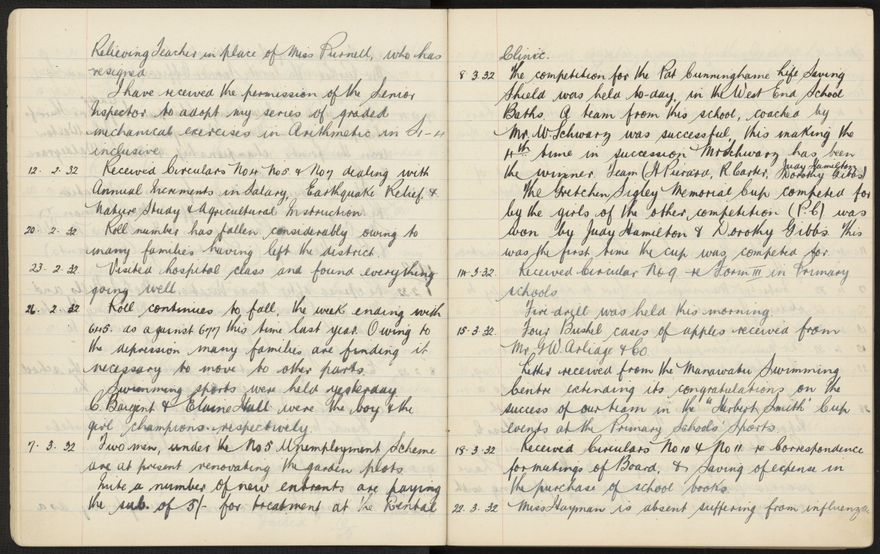 Relieving Teacher in place of Miss Purnell, who has
resigned
I have received the permission of the Senior
Inspector to adopt my series of graded
mechanical exercises in Arithmetic in S1-4
inclusive
12. 2. 32 Received Circulars No 4 No 5 & No 7 dealing with
Annual Increments in Salary, Earthquake Relief, &
Nature Study & Agricultural Instruction
20. 2. 32 Roll number has fallen considerably owing to
many families having left the district
23. 2. 32 Visited hospital class and found everything
going well
26. 2. 32 Roll continues to fall, the week ending with
as against this time last year. Owing to
the depression many families are finding it
necessary to move to other parts.
Swimming sports were held yesterday
C. Bargent & Elaine Hall were the boy & the
girl champions respectively
7. 3. 32 Two men, under the No 5 Unemployment Scheme
are at present renovating the garden plots
Quite a number of new entrants are paying
the sub. of 5/- for treatment at the Dental
Clinic.
8 3. 32 The competition for the Pat Cunninghame Life Saving
Shield was held to-day, in the West End School
Baths. A team from this school, coached by
Mr. W. Schwarz was successful, this making the
4th time in succession Mr Schwarz has been
the winner Team A Pierard, R. Carter, Judy Hamilton
Dorothy Gibbs
The Gretchen Sigley Memorial Cup competed for
by the girls of the other competition (P. 6) was
won by Judy Hamilton & Dorothy Gibbs. This
was the first time the cup was competed for
14. 3. 32 Received Circular No. 9 re Form III in Primary
schools
Fire drill was held this morning
15. 3. 32 Four Bushel cases of apples received from
Mr. G. W. & Co.
Letter received from the Manawatu Swimming
Centre extending its congratulations on the
success of our team in the "Herbert Smith" Cup
events at the Primary Schools' Sports.
18. 3. 32 Received Circulars No 10 & No 11 re Correspondence
for matings of Board, & Saving of expense in
the purchase of school books.
22. 3. 32 Miss Hayman is absent suffering from influenza